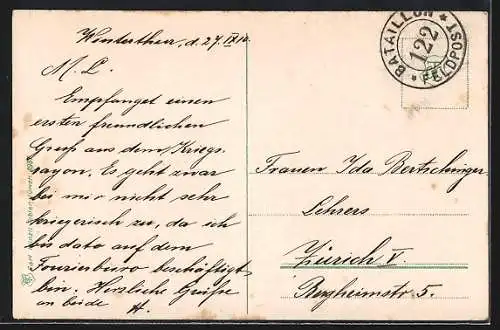 Winterthur, d. 27. IX 12.
M. L.
Empfanget einen
ersten freundlichen
Gruss aus dem Kriegs-
rayon. Es geht zwar
bei mir nicht sehr
kriegerisch zu, da ich
bis dato auf dem
Fourierbüro beschäftigt
bin. Herzliche Grüsse
an beide H.
BATAILLON
122
* FELDPOST *
Frauen Ida Bertschinger
Lehrers
Zürich V.
Bergheimstr 5.